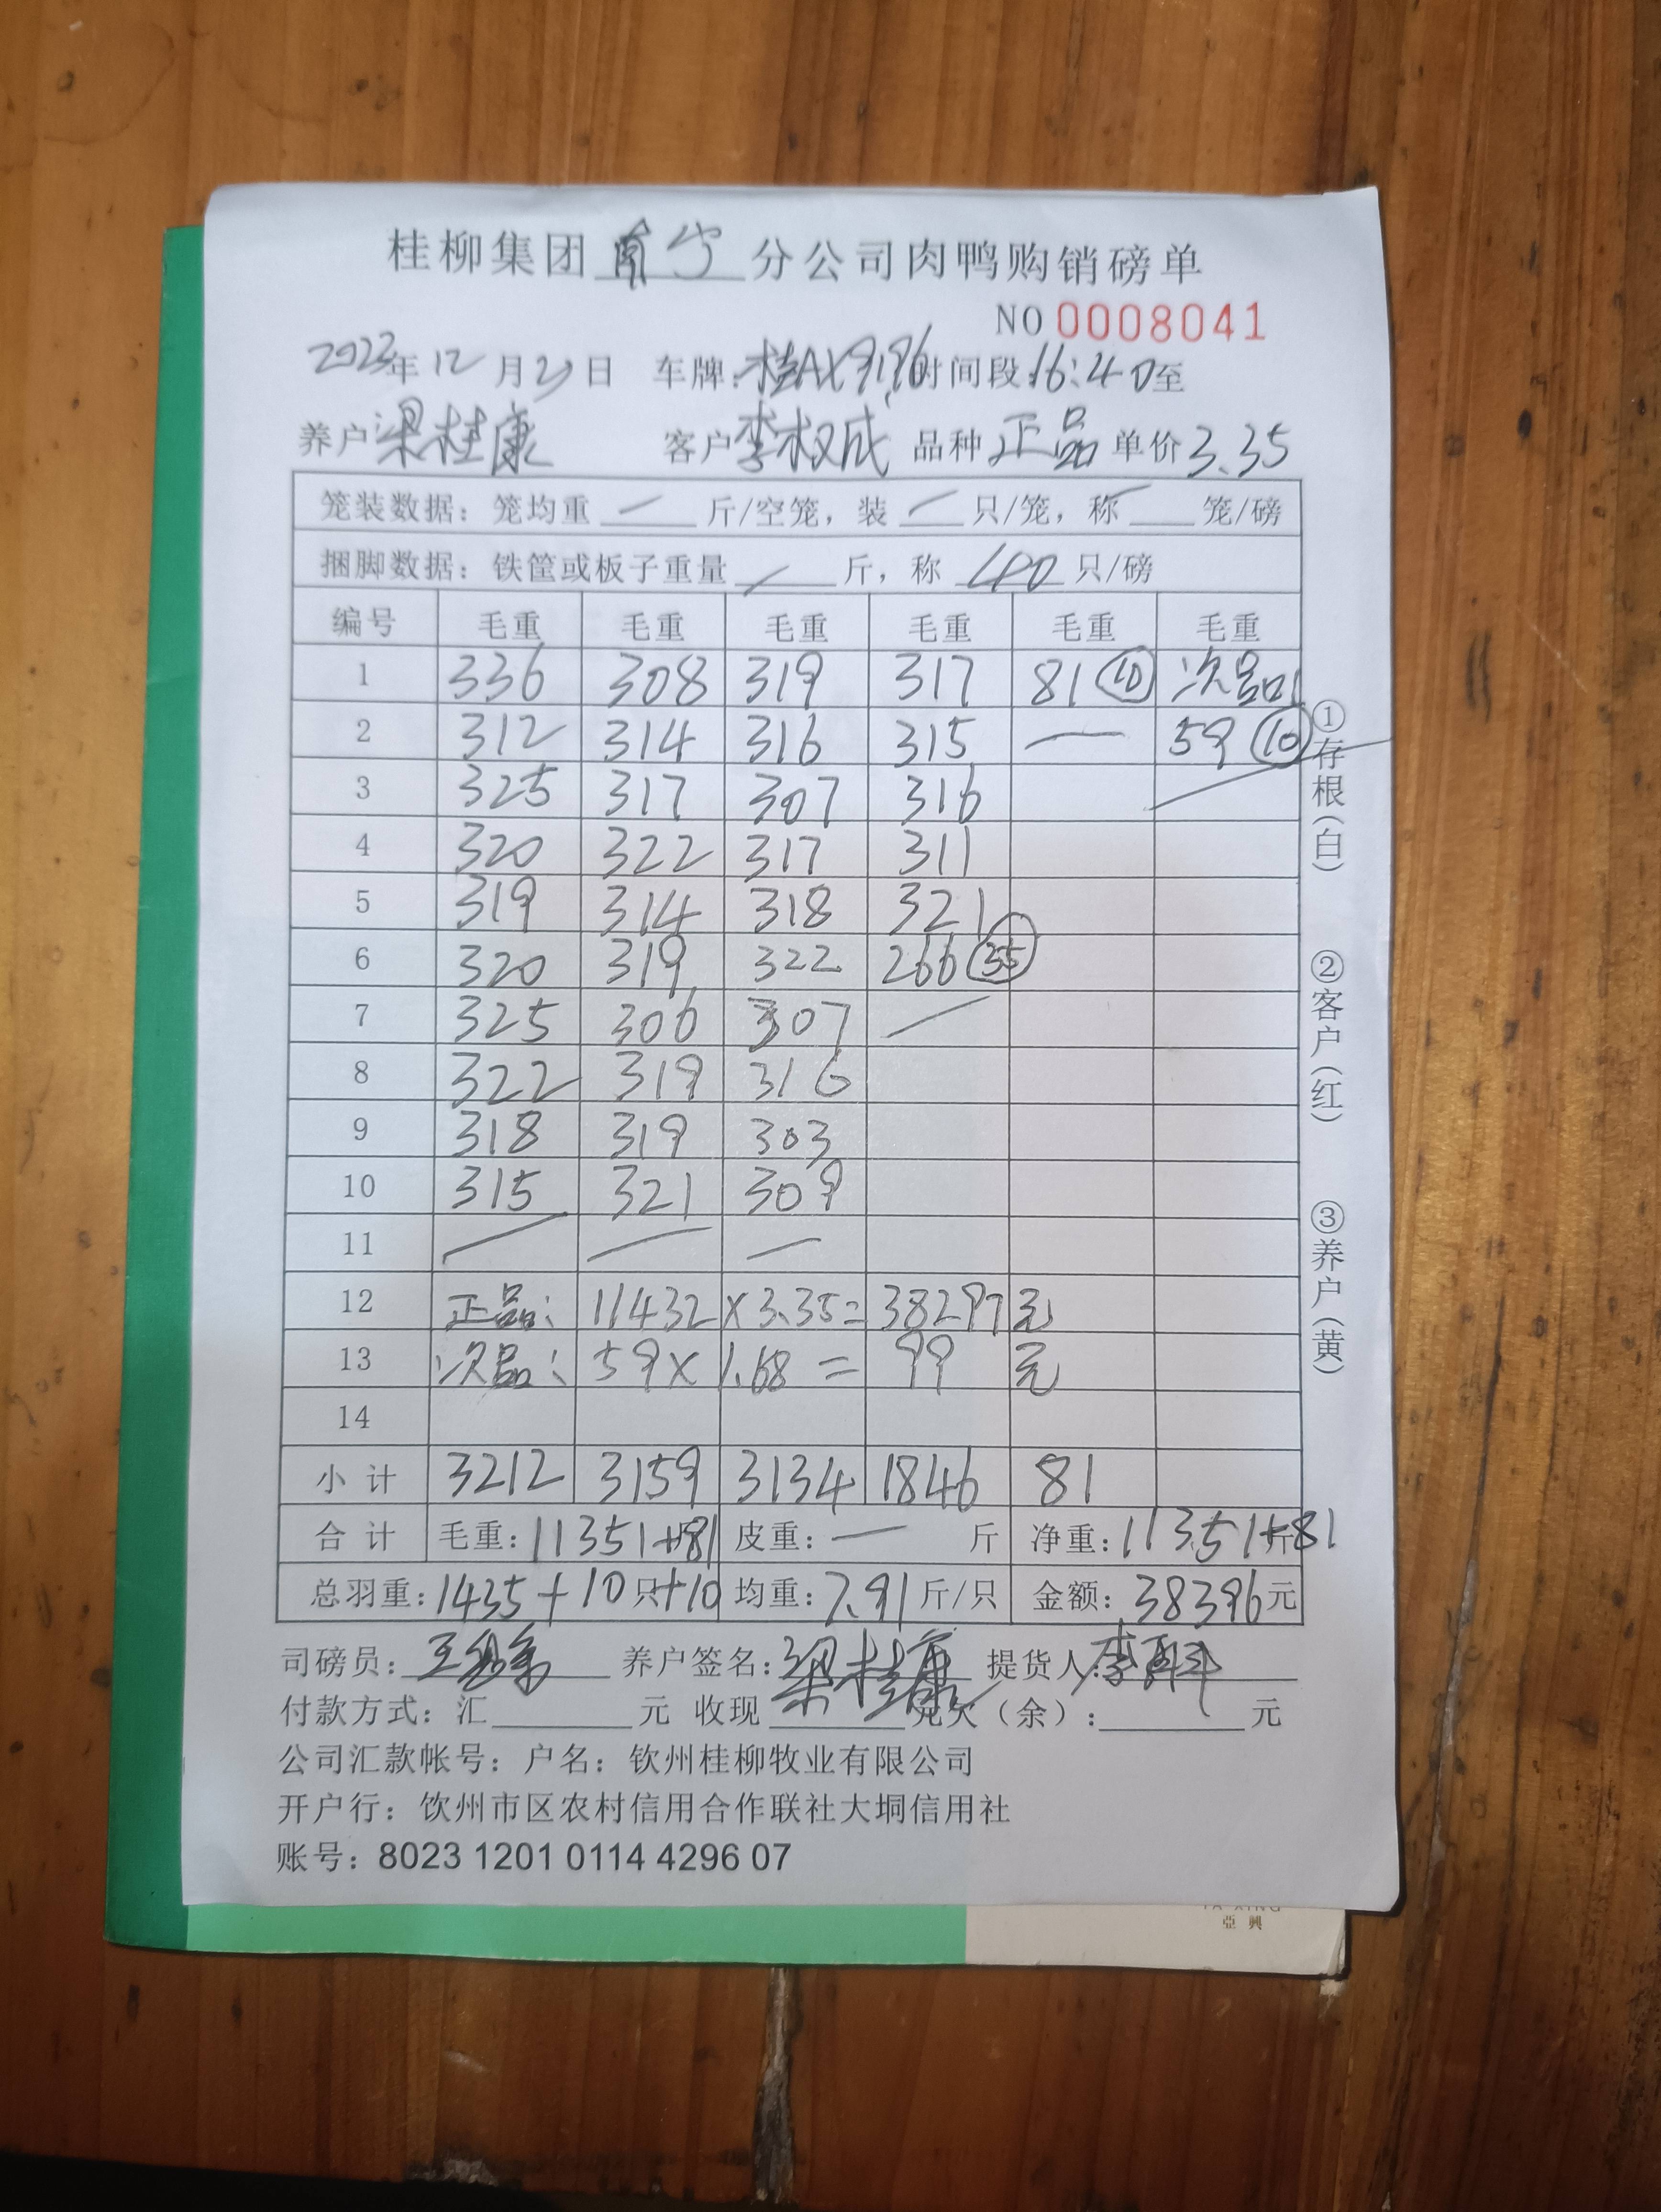 桂柳集团南宁分公司肉鸭购销磅单
NO 0008041
2023年12月21日 车牌:桂AX9196时间段:16:40至
养户梁桂康 客户李权成 品种正品 单价3.35
笼装数据:笼均重 — 斤/空笼,装 — 只/笼,称 — 笼/磅
捆脚数据:铁筐或板子重量 / 斤,称 40 只/磅
编号 毛重 毛重 毛重 毛重 毛重 毛重
1 336 308 319 317 81 ⑩ 次品
2 312 314 316 315 — 59 ⑩
3 325 317 307 316
4 320 322 317 311
5 319 314 318 321
6 320 319 322 266 ㉟
7 325 306 307 /
8 322 319 316
9 318 319 303
10 315 321 309
11 / / —
12 正品: 11432 × 3.35 = 38297元
13 次品: 59 × 1.68 = 99 元
14
小计 3212 3159 3134 1846 81
合计 毛重:11351+81斤 皮重:— 斤 净重:11351+81斤
总羽重:1435+10只+10 均重:7.91斤/只 金额:38396元
司磅员: 养户签名:梁桂康 提货人:李
付款方式:汇 元 收现 元欠(余): 元
公司汇款帐号:户名:钦州桂柳牧业有限公司
开户行:钦州市区农村信用合作联社大垌信用社
账号:8023 1201 0114 4296 07
①存根(白) ②客户(红) ③养户(黄)
YA XING
亞興